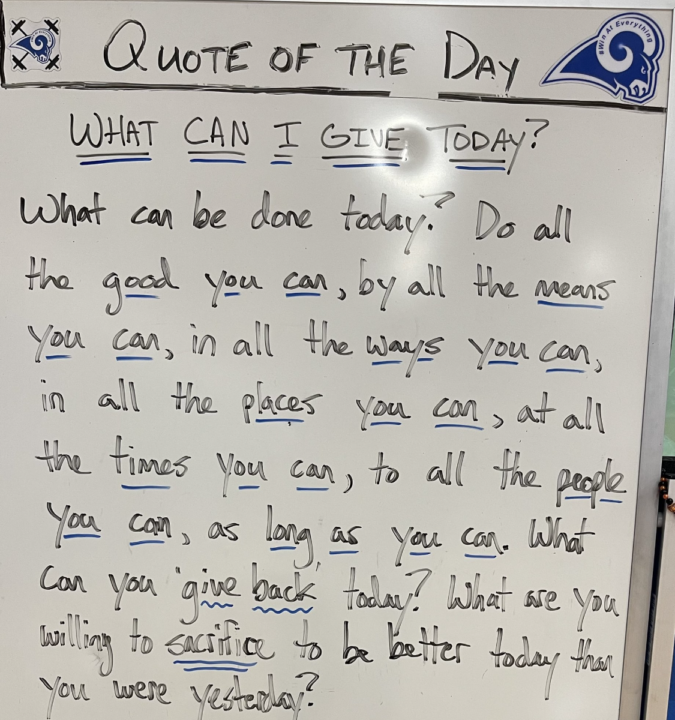 QUOTE OF THE DAY
#Win At Everything
WHAT CAN I GIVE TODAY?
What can be done today? Do all
the good you can, by all the means
you can, in all the ways you can,
in all the places you can, at all
the times you can, to all the people
you can, as long as you can. What
can you "give back" today? What are you
willing to sacrifice to be better today than
you were yesterday?